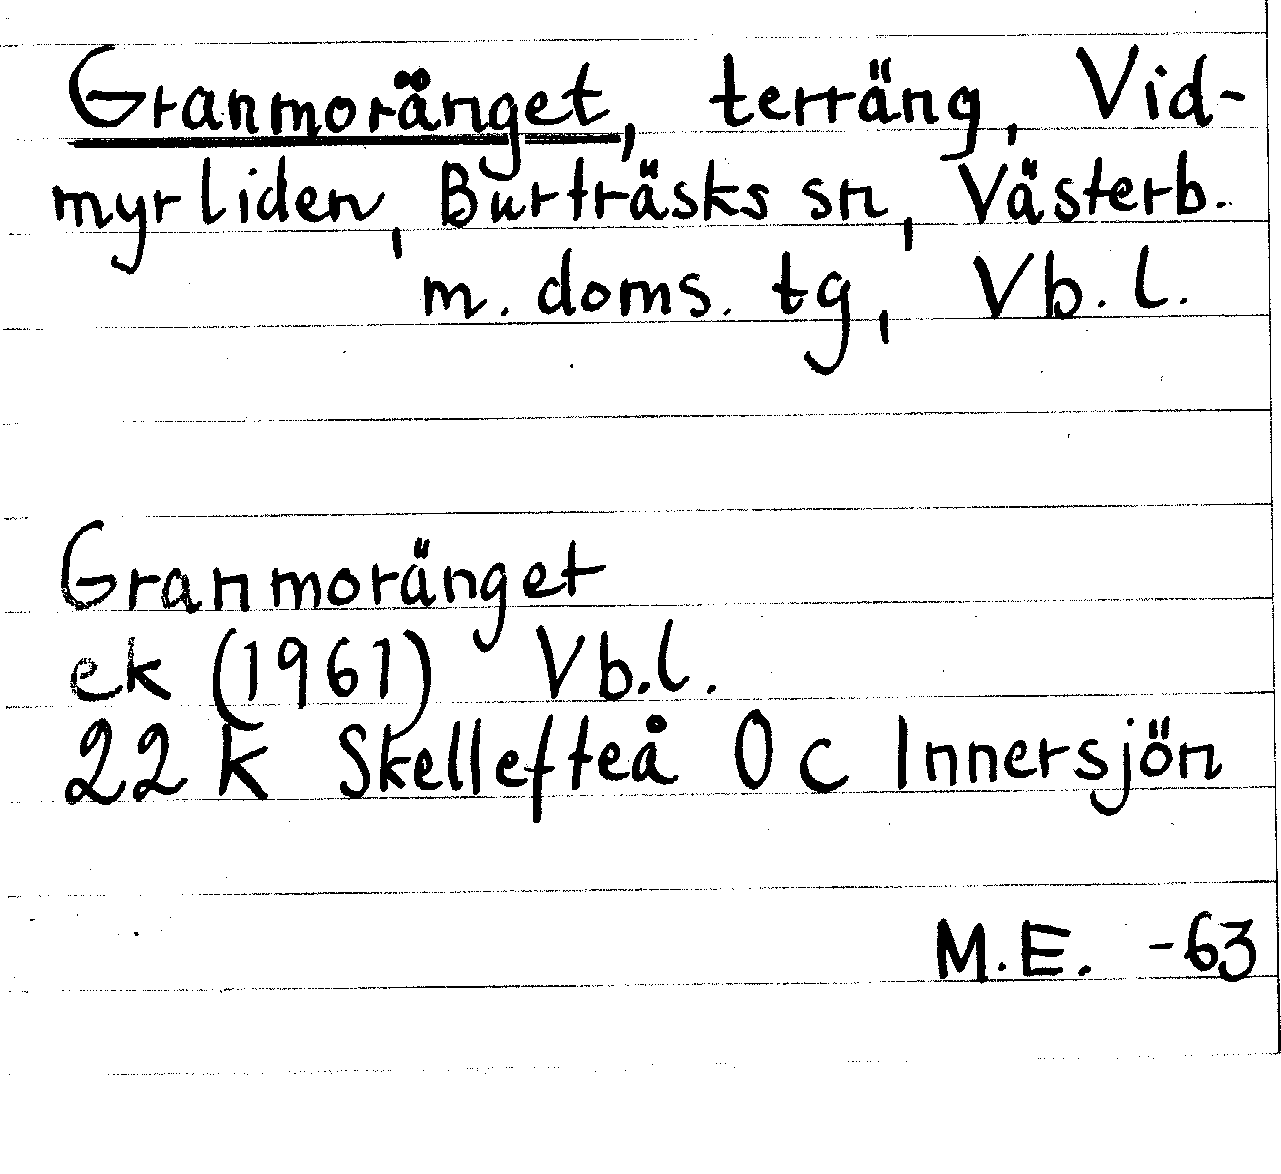 Granmoränget, terräng, Vid-
myrliden, Burträsks sn, Västerb.
m. doms. tg, Vb. l.
Granmoränget
ek (1961) Vb.l.
22 K Skellefteå 0 c Innersjön
M.E. -63